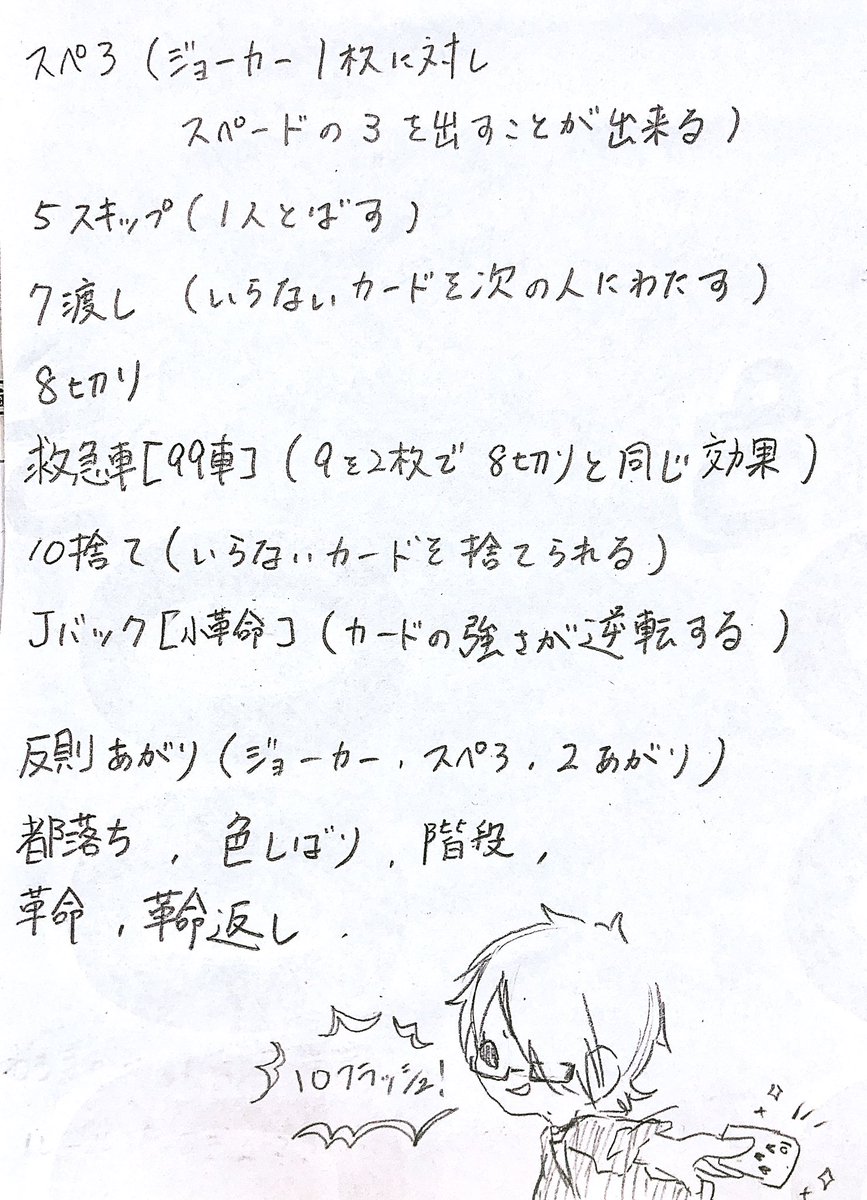 スペ3(ジョーカー1枚に対し
スペードの3を出すことが出来る)
5スキップ(1人とばす)
7渡し (いらないカードを次の人にわたす)
8切り
救急車[99車](9を2枚で8切りと同じ効果)
10捨て(いらないカードを捨てられる)
Jバック[小革命](カードの強さが逆転する)
反則あがり(ジョーカー.スペ3.2あがり)
都落ち,色しばり,階段,
革命,革命返し.
10フラッシュ!
10